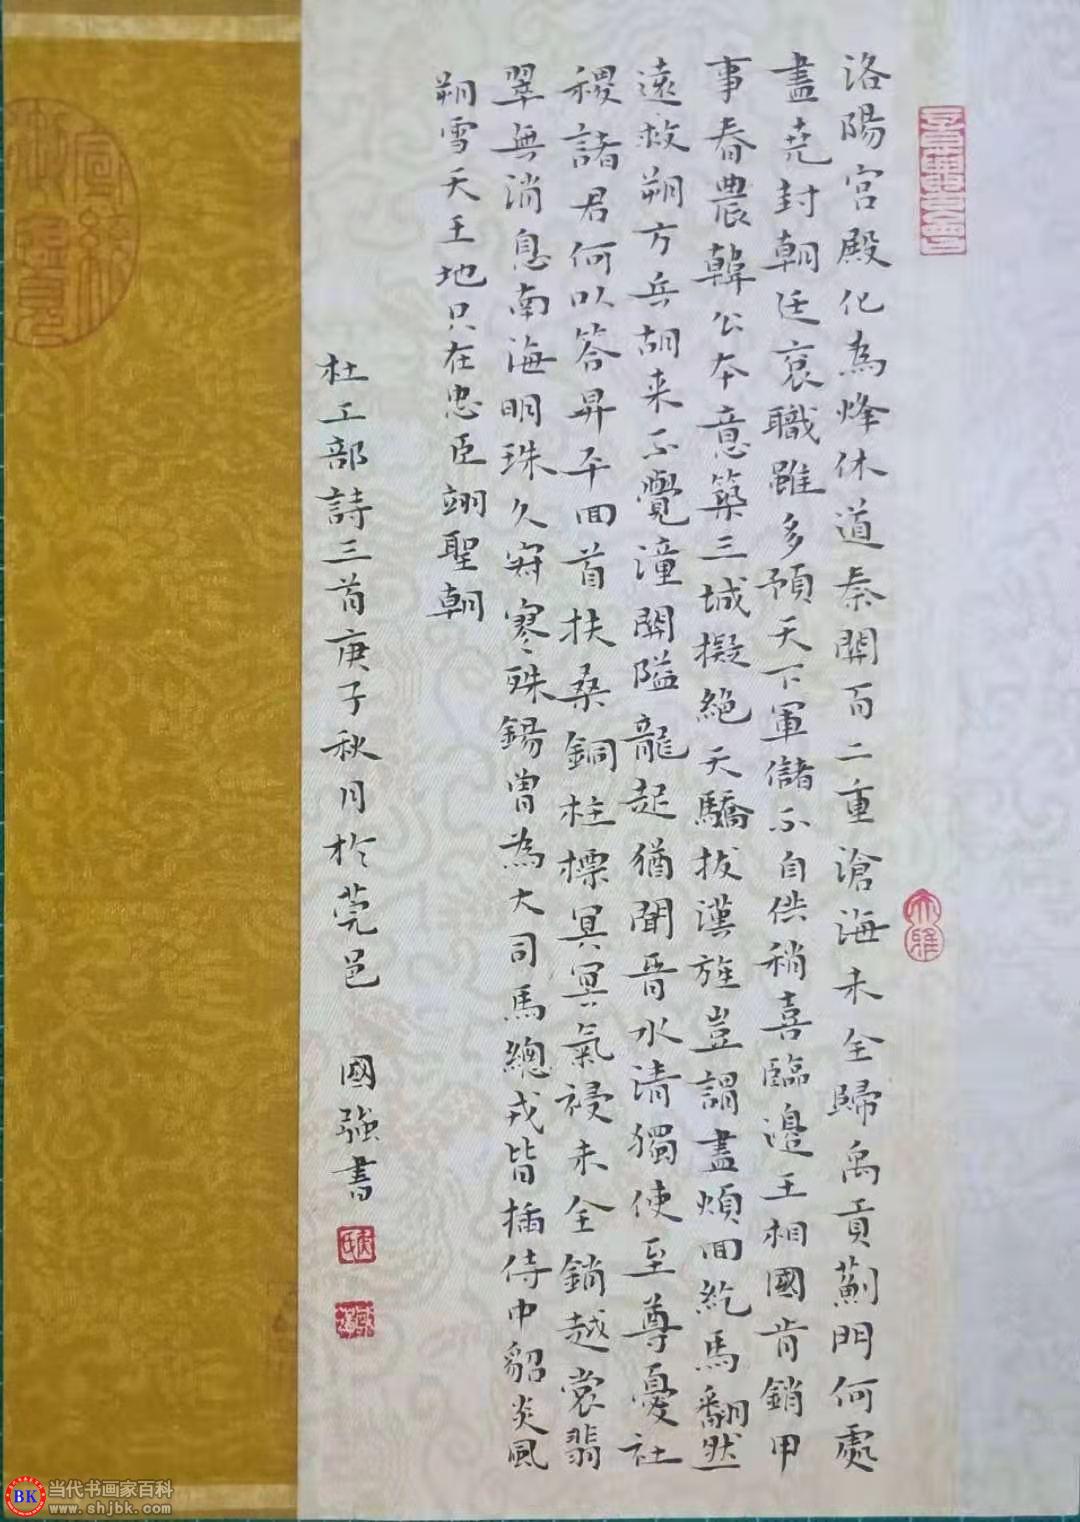 洛陽宮殿化為烽休道秦關百二重滄海未全歸禹貢薊門何處
盡堯封朝廷袞職雖多預天下軍儲不自供稍喜臨邊王相國肯銷甲
事春農韓公本意築三城擬絕天驕拔漢旌豈謂盡煩回紇馬翻然
遠救朔方兵胡来不覺潼關隘龍起猶聞晉水清獨使至尊憂社
稷諸君何以答昇平回首扶桑銅柱標冥冥氣祲未全銷越裳翡
翠無消息南海明珠久寂寥殊錫曾為大司馬總戎皆插侍中貂炎風
朔雪天王地只在忠臣翊聖朝
杜工部詩三首庚子秋月於莞邑 國強書
大雅
BK 当代书画家百科
www.shjbk.com